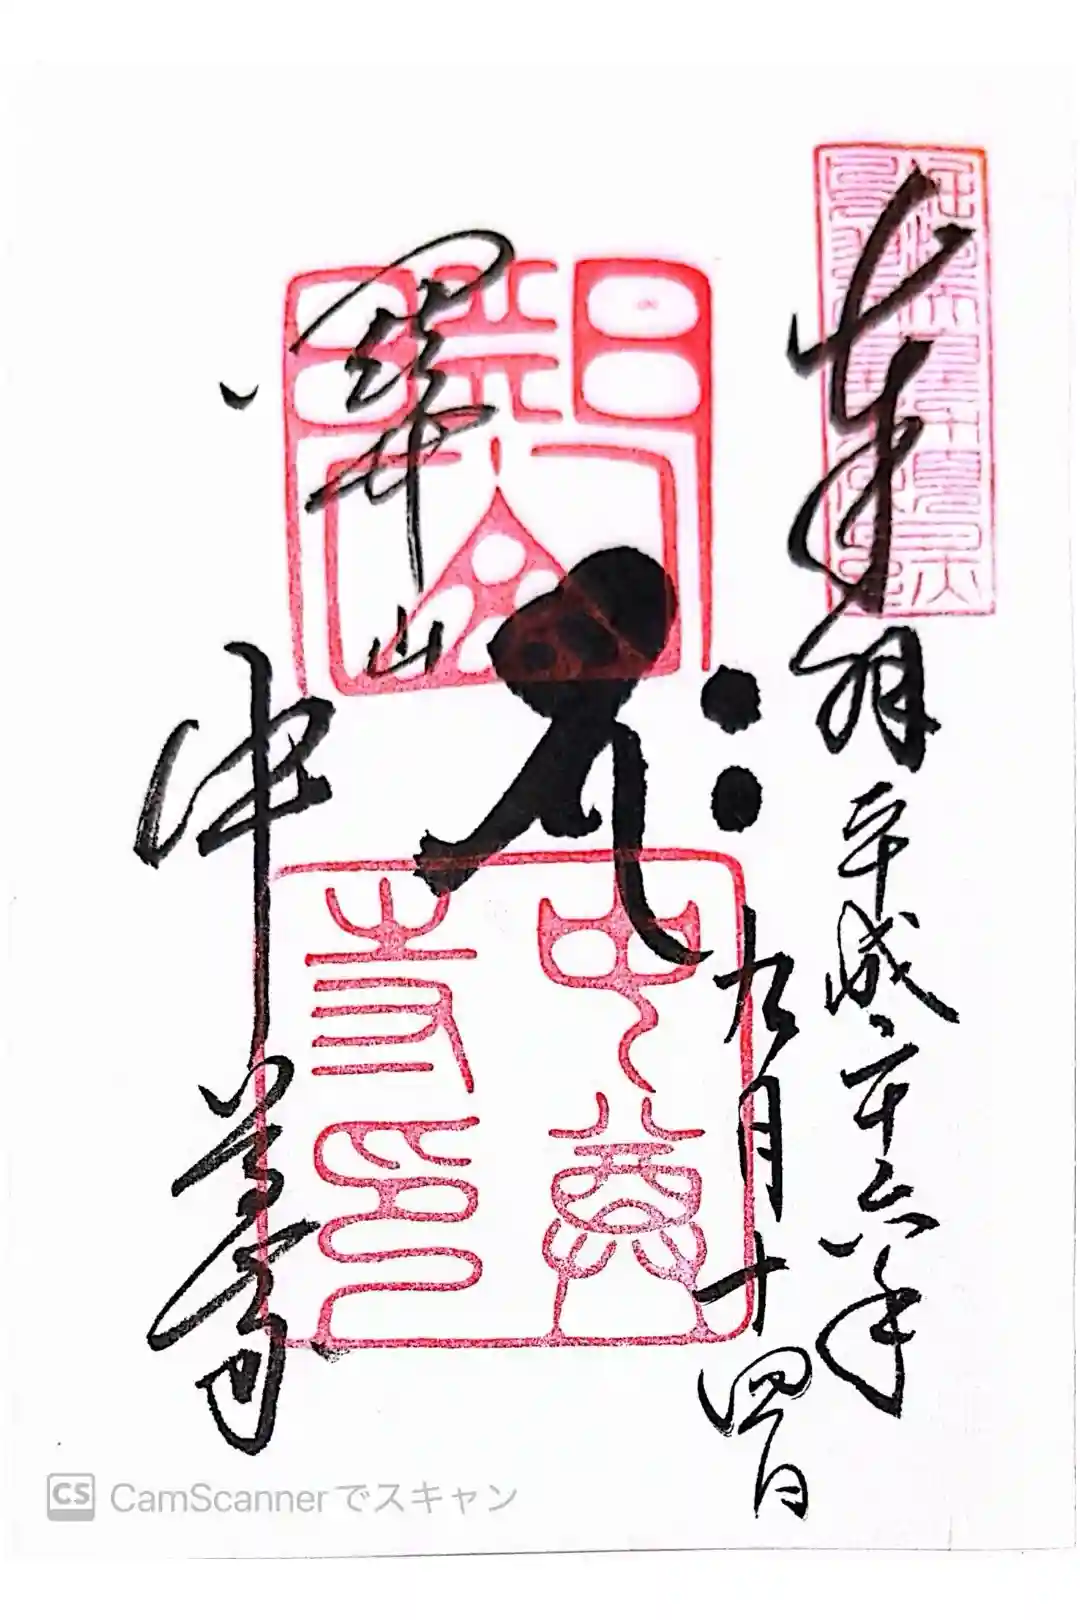 奉拝 平成二十六年
九月十四日
関山
中尊寺
中尊
寺印
CS CamScannerでスキャン